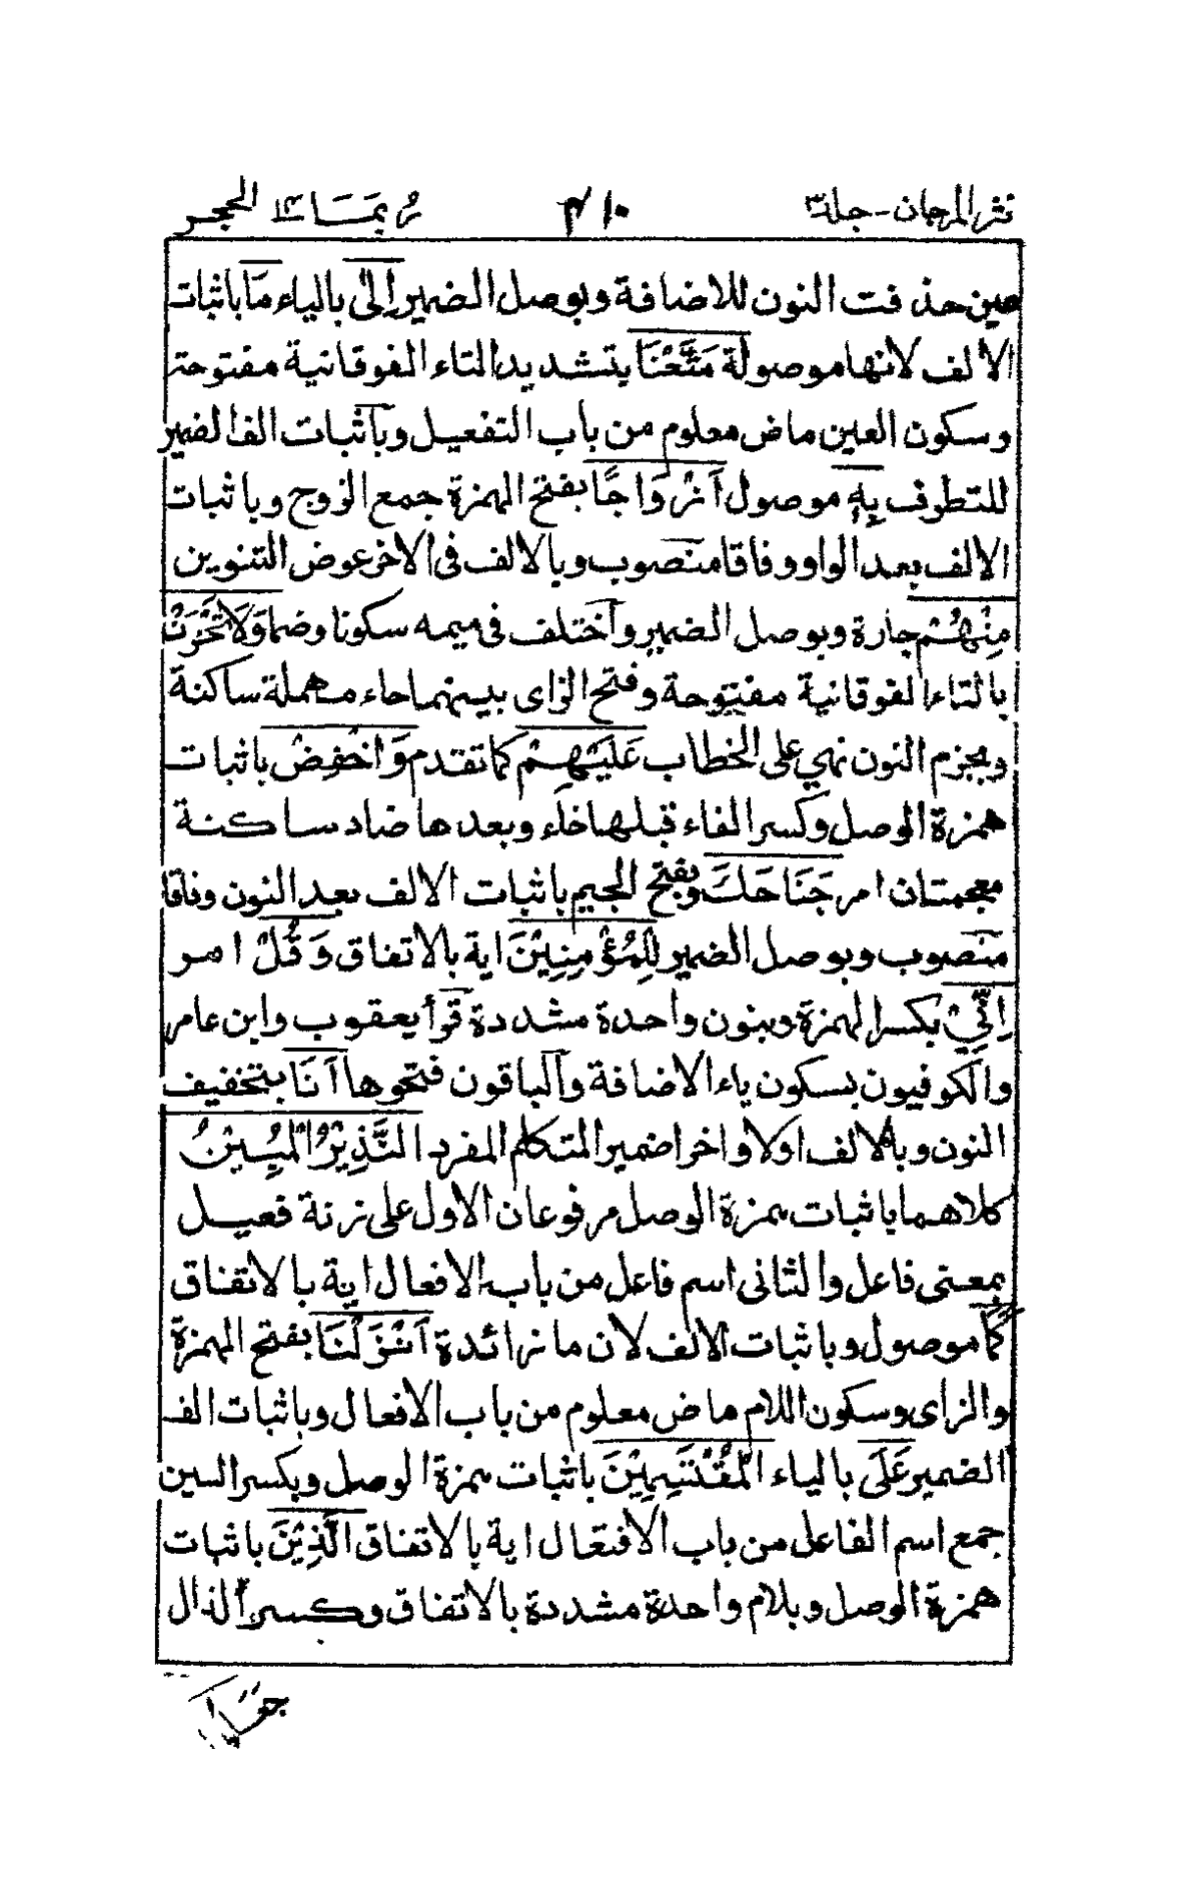 نثر المرجان - جلد ٣ ١٠ ربما ١٤ الحجر
حذفت النون للاضافة وبوصل الضمير اِلٰى بالياء مَا باثبات
الالف لانها موصولة مَتَّعْنَا بتشديد التاء الفوقانية مفتوحة
وسكون العين ماض معلوم من باب التفعيل وباثبات الف الضمير
للتطرف بِهٖ موصول اَزْوَاجًا بفتح الهمزة جمع الزوج وباثبات
الالف بعد الواو وفاقا منصوب وبالالف فى الاخر عوض التنوين
مِنْهُمْ جارة وبوصل الضمير واختلف فى ميمه سكونا وضما وَلَا تَحْزَنْ
بالتاء الفوقانية مفتوحة وفتح الزاى بينهما حاء مهملة ساكنة
وبجزم النون نهي على الخطاب عَلَيْهِمْ كما تقدم وَاخْفِضْ باثبات
همزة الوصل وكسر الفاء قبلها خاء وبعدها ضاد ساكنة
معجمتان امر جَنَاحَكَ وبفتح الجيم باثبات الالف بعد النون وفاقا
منصوب وبوصل الضمير لِلْمُؤْمِنِيْنَ اية بالاتفاق وَقُلْ امر
اِنِّيْ بكسر الهمزة وبنون واحدة مشددة قرأ يعقوب وابن عامر
والكوفيون بسكون ياء الاضافة والباقون فتحوها اَنَا بتخفيف
النون وبالالف اولا واخرا ضمير المتكلم المفرد النَّذِيْرُ الْمُبِيْنُ
كلاهما باثبات همزة الوصل مرفوعان الاول على زنة فعيل
بمعنى فاعل والثانى اسم فاعل من باب الافعال اية بالاتفاق
كَمَا موصول وباثبات الالف لان ما زائدة اَنْزَلْنَا بفتح الهمزة
والزاى وسكون اللام ماض معلوم من باب الافعال وباثبات الف
الضمير عَلَى بالياء الْمُقْتَسِمِيْنَ باثبات همزة الوصل وبكسر السين
جمع اسم الفاعل من باب الافتعال اية بالاتفاق الَّذِيْنَ باثبات
همزة الوصل وبلام واحدة مشددة بالاتفاق وكسر الذال